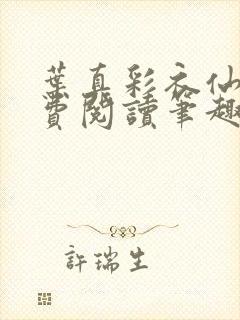 葉真彩衣仙
費閱讀筆趣
許瑞生